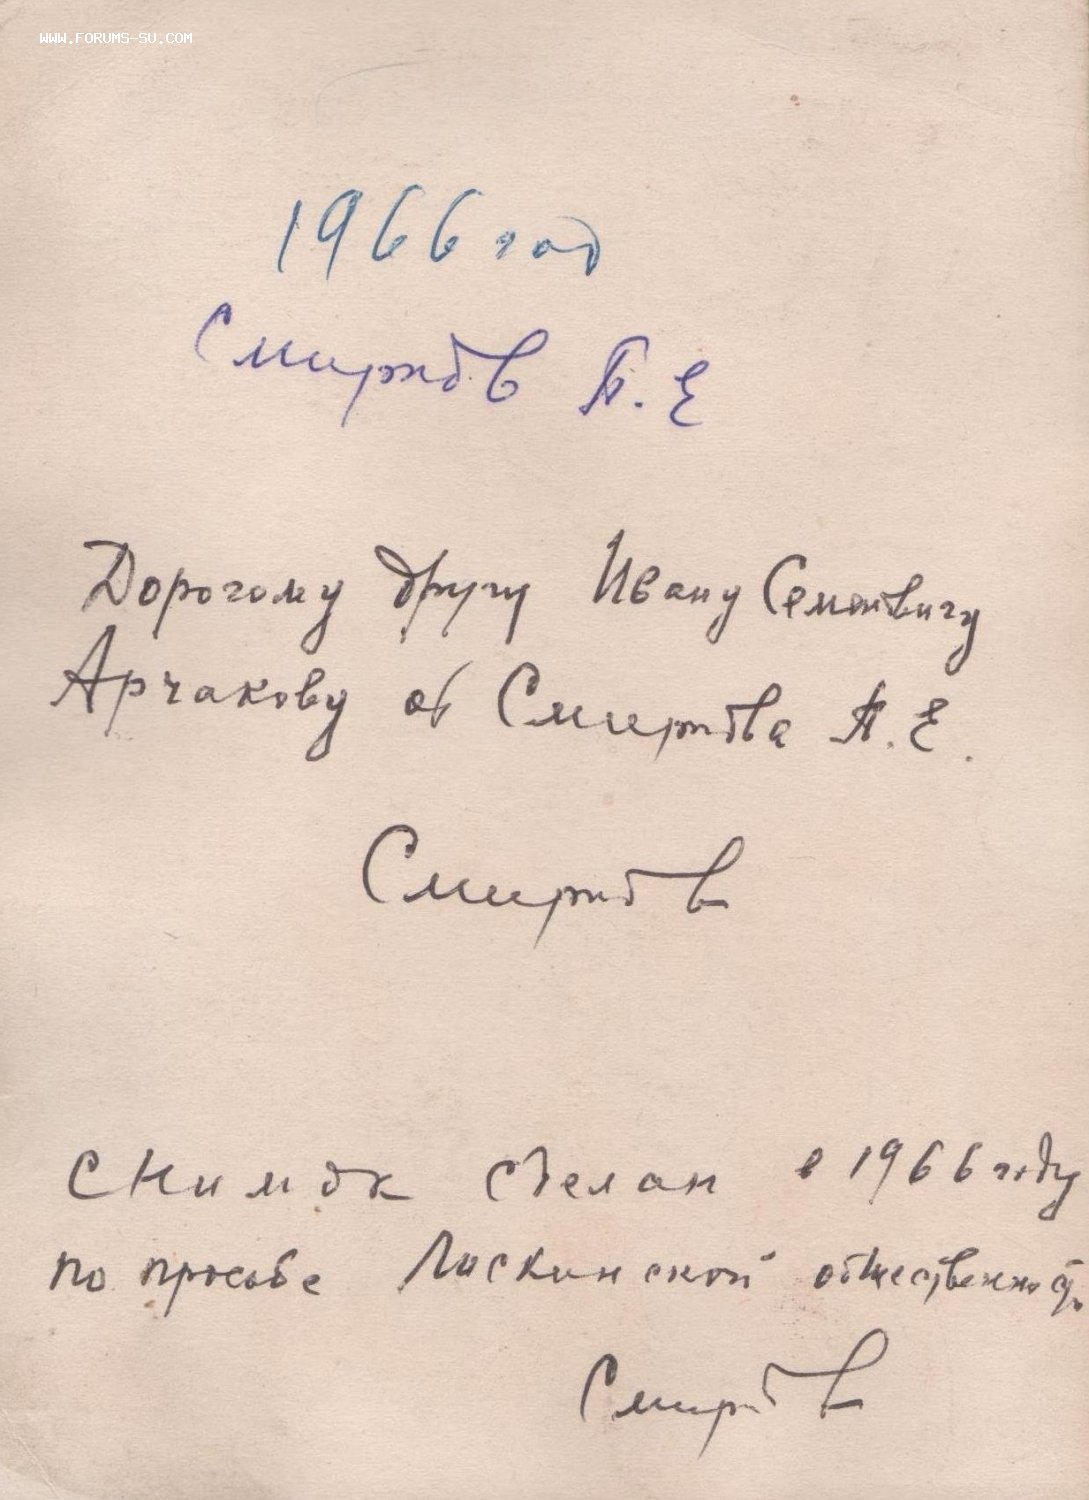 WWW.FORUMS-SU.COM
1966 год
Смирнов П. Е
Дорогому другу Ивану Семеновичу
Арчакову от Смирнова П. Е.
Смирнов
Снимок сделан в 1966 году
по просьбе Лискинской общественности
Смирнов